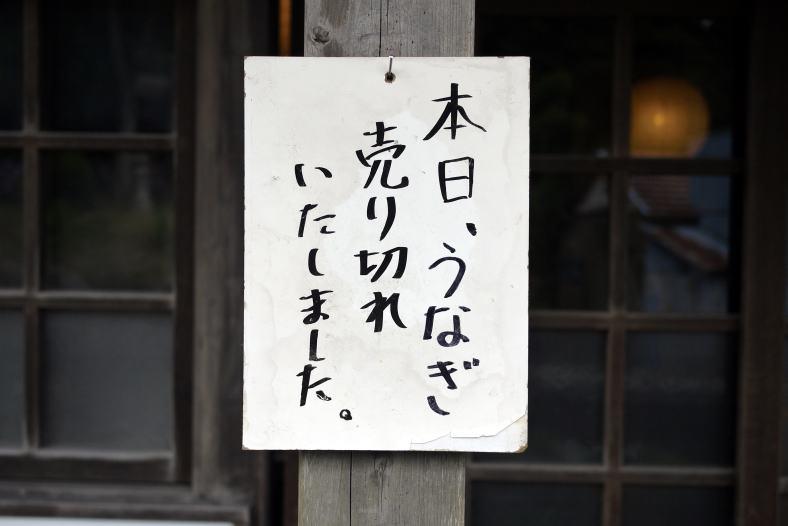 本日、うなぎ
売り切れ
いたしました。